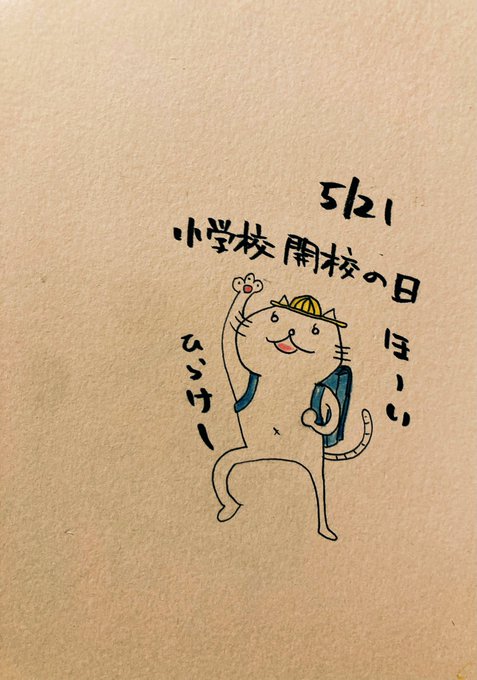 5/21
小学校開校の日
ほーい
ひらけー